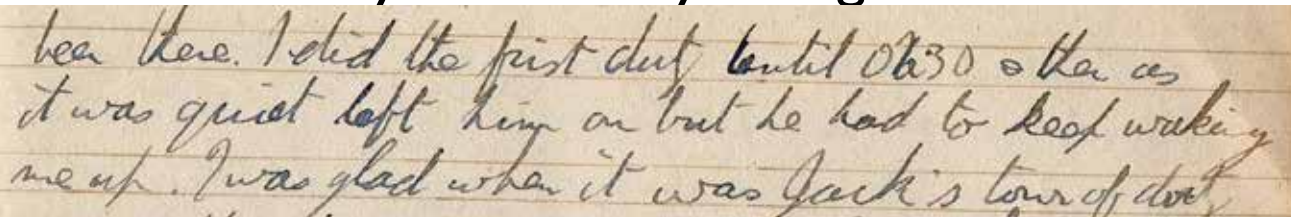 been there. I did the first duty until 0230 & then as
it was quiet left him on but he had to keep waking
me up. I was glad when it was Jack's tour of duty